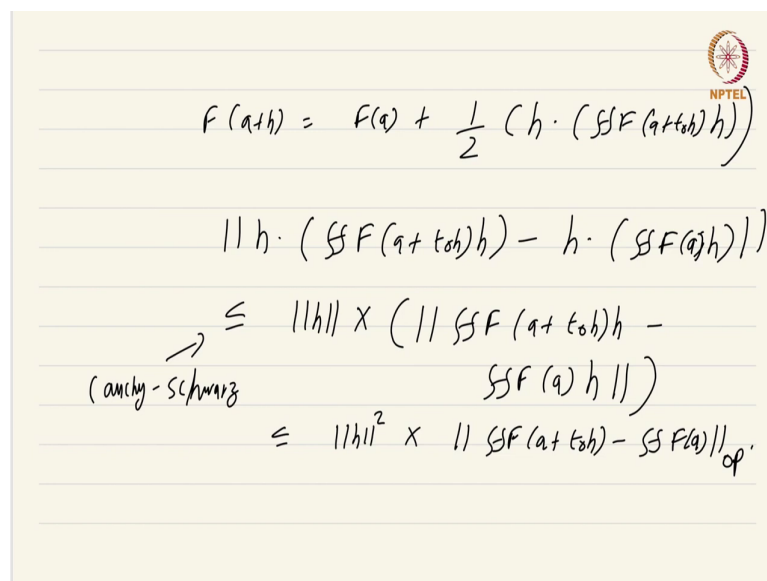 NPTEL
F(a+h) = F(a) + 1/2 (h · (ℌF(a+t₀h)h))
||h · (ℌF(a+t₀h)h) − h · (ℌF(a)h)||
≤ ||h|| × (||ℌF(a+t₀h)h −
Cauchy-Schwarz
ℌF(a)h||)
≤ ||h||² × ||ℌF(a+t₀h) − ℌF(a)||op.